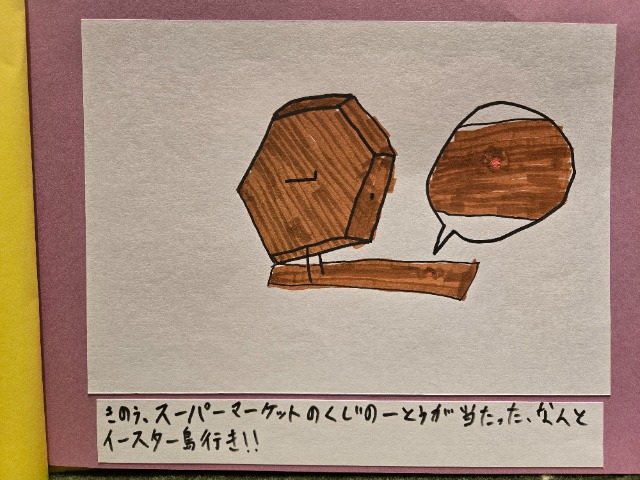 きのう、スーパーマーケットのくじの一とうが当たった、なんと
イースター島行き!!